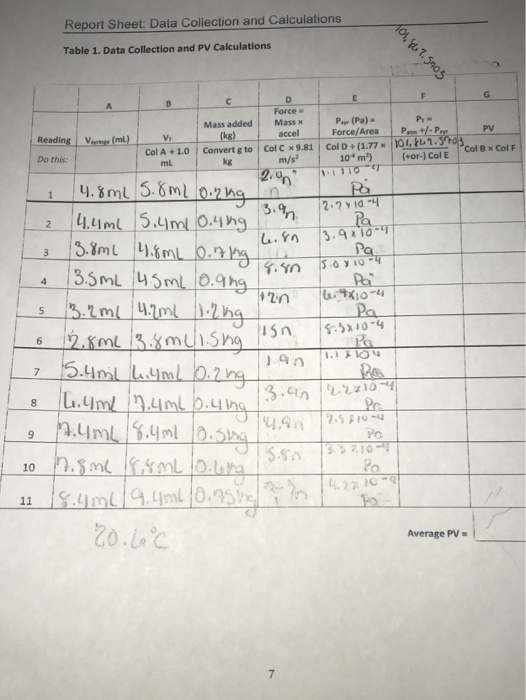 Report Sheet: Data Collection and Calculations
101,867.5905
Table 1. Data Collection and PV Calculations
A B C D E F G
Reading Vsyringe (mL) VT Mass added (kg) Force = Mass x accel Pwt (Pa) = Force/Area PT = Patm +/- Pwt PV
Do this: Col A + 1.0 mL Convert g to kg Col C × 9.81 m/s² Col D ÷ (1.77 × 10⁻⁴ m²) 101,867.5905 (+or-) Col E Col B × Col F
1 4.8ml 5.8ml 0.2kg 2.0n Pa
2 4.4ml 5.4ml 0.4kg 3.9n 2.2x10-4 Pa
3 3.8ml 4.8ml 0.7kg 6.8n 3.9x10-4 Pa
4 3.5mL 4.5ml 0.9kg 8.8n 5.0x10-4 Pa
5 3.2ml 4.2ml 1.2kg 12n Pa
6 2.8ml 3.8ml 1.5kg 15n 8.5x10-4 Pa
7 5.4ml 6.4ml 0.2kg 1.9n Pa
8 6.4ml 7.4ml 0.4kg 3.9n 2.2x10-4 Pa
9 7.4ml 8.4ml 0.5kg 4.9n Pa
10 7.8ml 8.8ml 0.6kg 5.8n Pa
11 8.4ml 9.4ml 0.75kg Pa
20.6°C
Average PV =
7